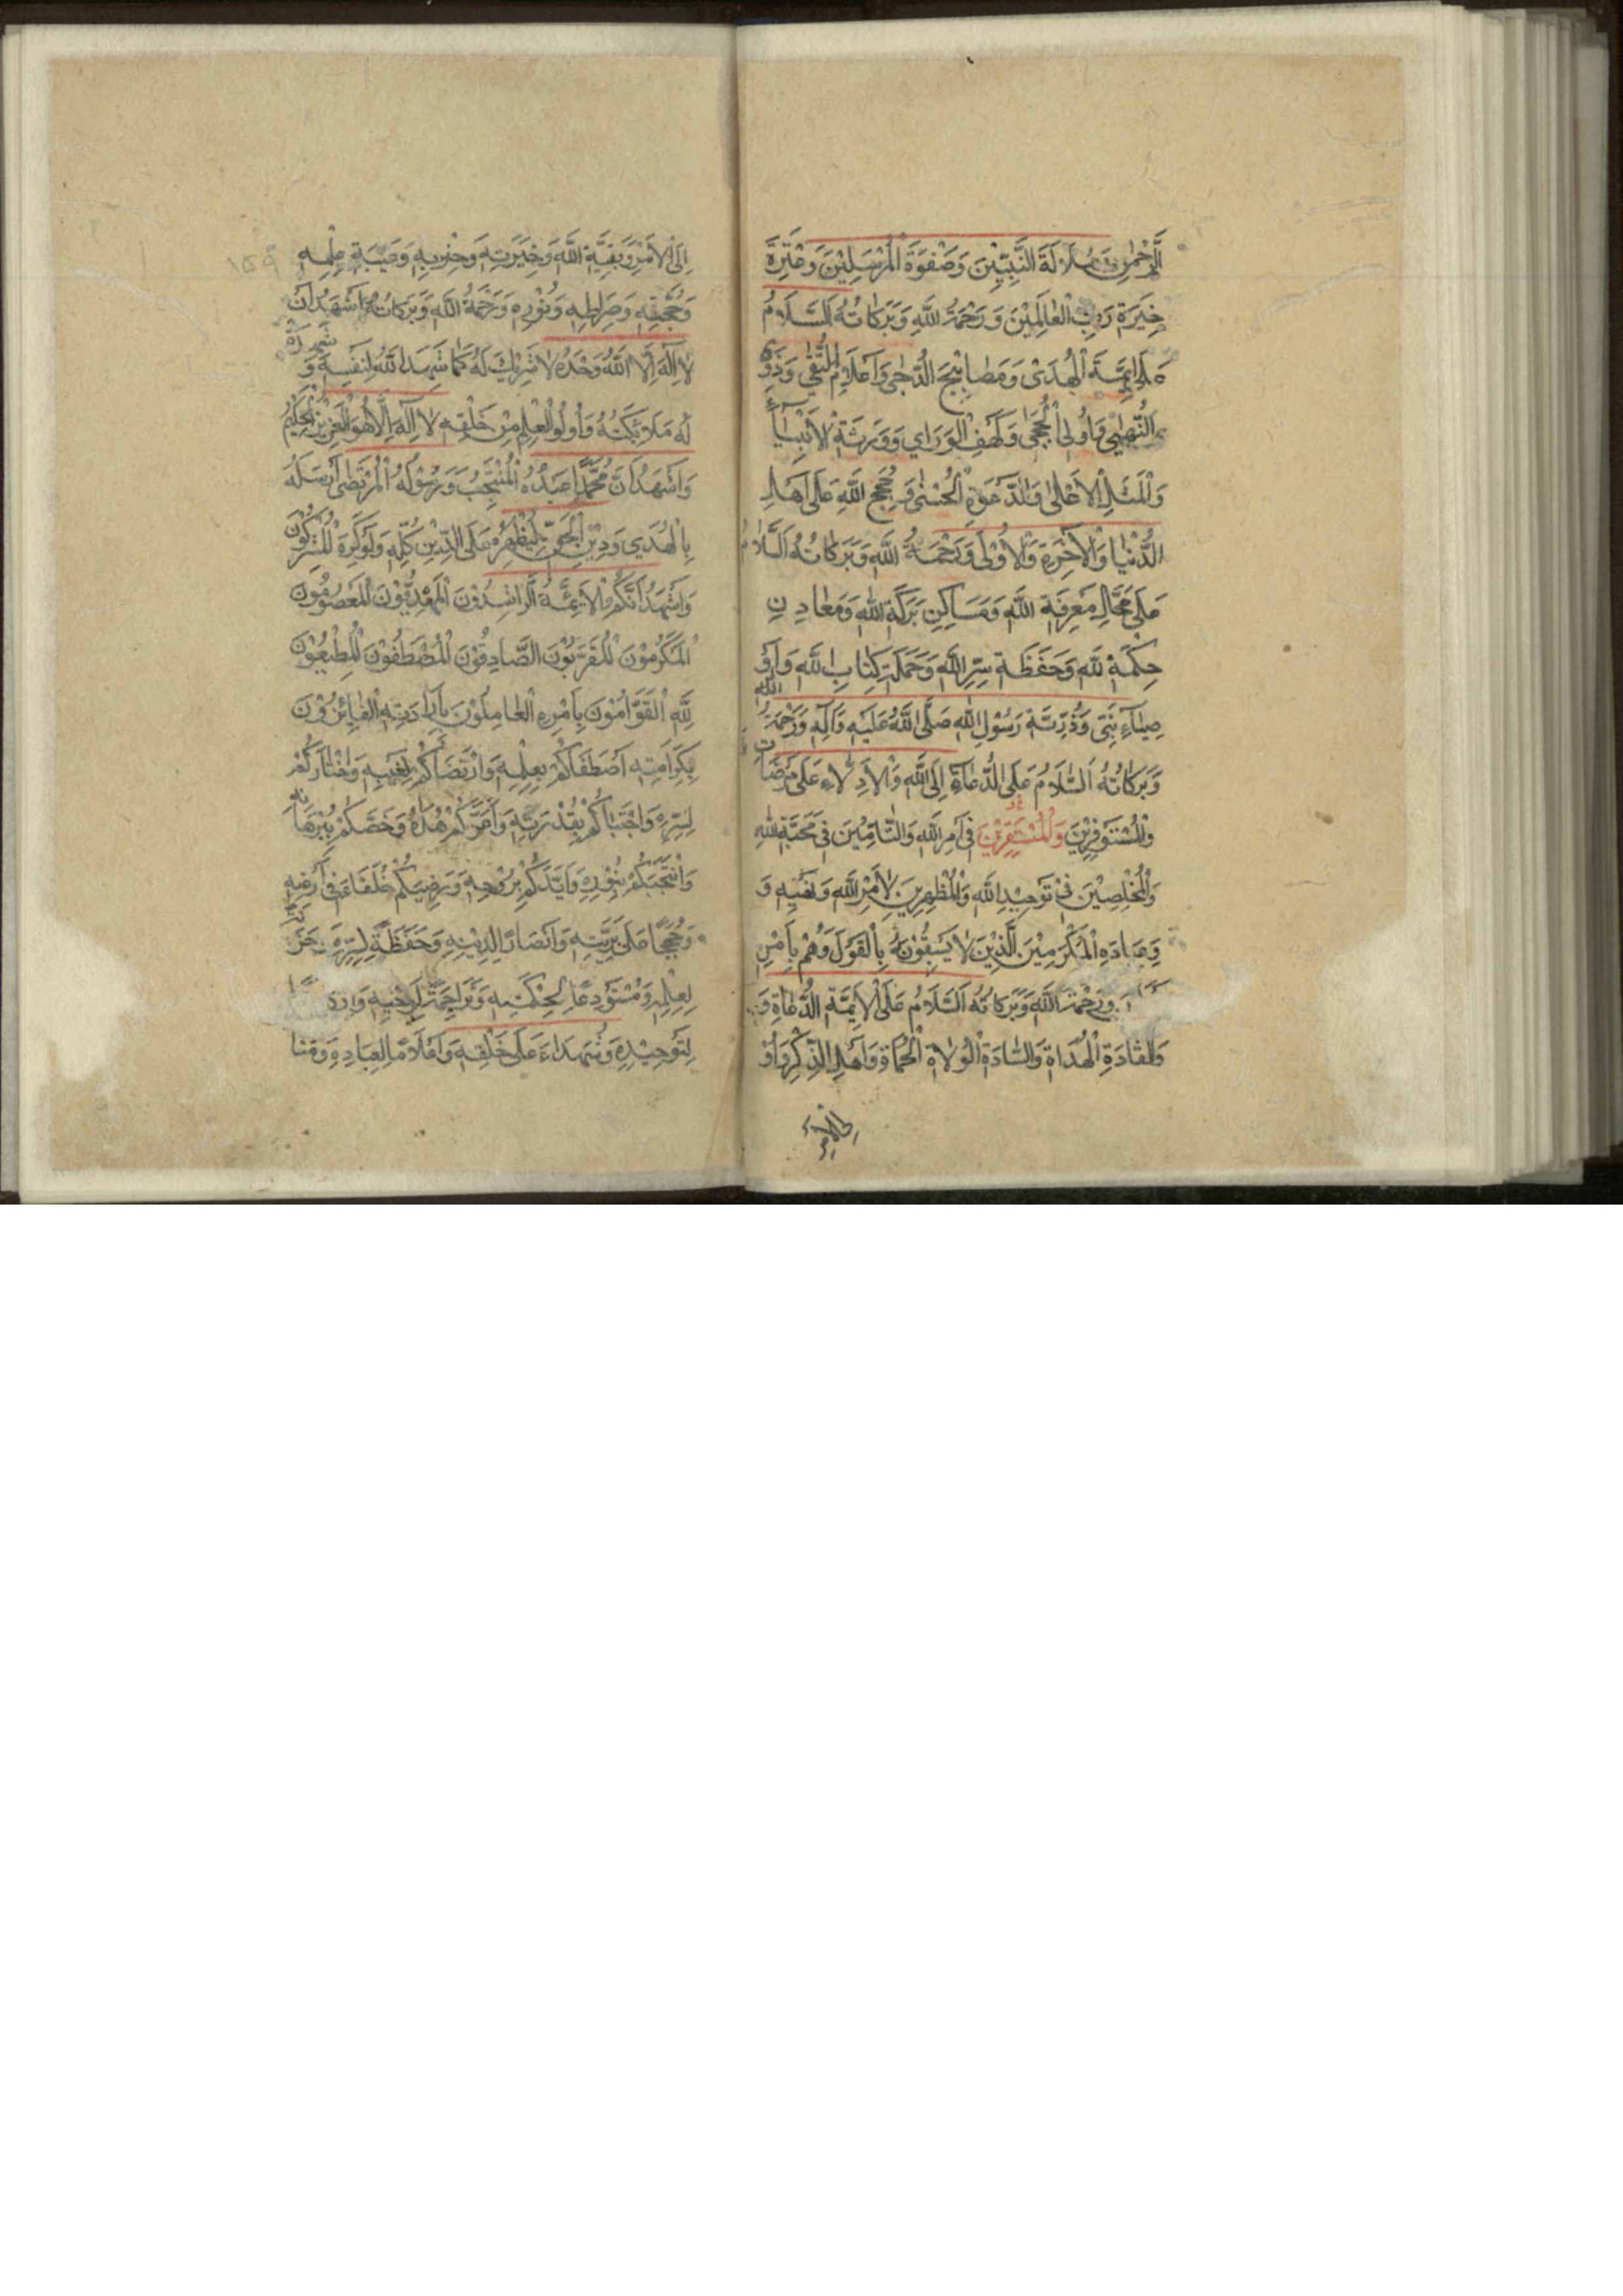 الَّرحْمٰنِ وَسُلَالَةَ النَّبِيّيْنَ وَصَفْوَةَ الْمُرْسَلِيْنَ وَعِتْرَةَ
خِيَرَةِ رَبِّ الْعٰالَمِيْنَ وَرَحْمَةُ اللّٰهِ وَبَرَكاتُهُ اَلسَّلَامُ
عَلٰى اَئِمَّةِ الْهُدَىٰ وَمَصٰابِيْحِ الدُّجٰى وَاَعْلَامِ التُّقٰى وَذَوِى
النُّهٰى وَاُولِى الْحُجٰى وَكَهْفِ الْوَرٰاى وَوَرَثَةِ الْاَنْبِيٰآءِ
وَالْمَثَلِ الْاَعْلٰى وَالدَّعْوَةِ الْحُسْنٰى وَحُجَجِ اللّٰهِ عَلٰى اَهْلِ
الدُّنْيٰا وَالْاٰخِرَةِ وَالْاُوْلٰى وَرَحْمَةُ اللّٰهِ وَبَرَكاتُهُ اَلسَّلَامُ
عَلٰى مَحٰالِّ مَعْرِفَةِ اللّٰهِ وَمَسَاكِنِ بَرَكَةِ اللّٰهِ وَمَعٰادِنِ
حِكْمَةِ اللّٰهِ وَحَفَظَةِ سِرِّ اللّٰهِ وَحَمَلَةِ كِتٰابِ اللّٰهِ وَاَوْ
صِيٰآءِ نَبِىِّ اللّٰهِ وَذُرِّيَّةِ رَسُوْلِ اللّٰهِ صَلَّى اللّٰهُ عَلَيْهِ وَاٰلِهِ وَرَحْمَةُ
وَبَرَكٰاتُهُ اَلسَّلَامُ عَلَى الدُّعٰاةِ اِلَى اللّٰهِ وَالْاَدِلّاءِ عَلٰى مَرْضَاتِ
وَالْمُسْتَوْفِرِيْنَ وَالْمُسْتَقِرِّيْنَ فِى اَمْرِ اللّٰهِ وَالتّٰامِّيْنَ فِى مَحَبَّةِ اللّٰهِ
وَالْمُخْلِصِيْنَ فِىْ تَوْحِيْدِ اللّٰهِ وَالْمُظْهِرِيْنَ لِاَمْرِ اللّٰهِ وَنَهْيِهِ وَ
وَعِبَادِهِ الْمُكْرَمِيْنَ الَّذِيْنَ لَا يَسْبِقُوْنَهُ بِالْقَوْلِ وَهُمْ بِاَمْرِ
وَرَحْمَةُ اللّٰهِ وَبَرَكَاتُهُ اَلسَّلَامُ عَلَى الْاَئِمَّةِ الدُّعٰاةِ وَ
وَالْقٰادَةِ الْهُدَاةِ وَالسّٰادَةِ الْوُلَاةِ الْحُمٰاةِ وَاَهْلِ الذِّكْرِ وَاُوْ
اِلَى الْاَمْرِ وَبَقِيَّةِ اللّٰهِ وَخِيَرَتِهِ وَحِزْبِهِ وَعَيْبَةِ عِلْمِهِ
وَحُجَّتِهِ وَصِرَاطِهِ وَنُوْرِهِ وَرَحْمَةُ اللّٰهِ وَبَرَكاتُهُ اَشْهَدُ اَنْ
لا اِلٰهَ اِلَّا اللّٰهُ وَحْدَهُ لَا شَرِيْكَ لَهُ كَمٰا شَهِدَ اللّٰهُ لِنَفْسِهِ وَشَهِدَتْ
لَهُ مَلَائِكَتُهُ وَاُولُو الْعِلْمِ مِنْ خَلْقِهِ لا اِلٰهَ اِلَّا هُوَ الْعَزِيْزُ الْحَكِيْمُ
وَاَشْهَدُ اَنَّ مُحَمَّدًا عَبْدُهُ الْمُنْتَجَبُ وَرَسُوْلُهُ الْمُرْتَضٰى اَرْسَلَهُ
بِالْهُدٰى وَدِيْنِ الْحَقِّ لِيُظْهِرَهُ عَلَى الدِّيْنِ كُلِّهِ وَلَوْ كَرِهَ الْمُشْرِكُوْنَ
وَاَشْهَدُ اَنَّكُمُ الْاَئِمَّةُ الرَّاشِدُوْنَ الْمَهْدِيُّوْنَ الْمَعْصُوْمُوْنَ
الْمُكَرَّمُوْنَ الْمُقَرَّبُوْنَ الصَّادِقُوْنَ الْمُصْطَفَوْنَ الْمُطِيْعُوْنَ
لِلّٰهِ الْقَوَّامُوْنَ بِاَمْرِهِ الْعٰامِلُوْنَ بِاِرَادَتِهِ الْفٰائِزُوْنَ
بِكَرَامَتِهِ اصْطَفَاكُمْ بِعِلْمِهِ وَارْتَضَاكُمْ لِغَيْبِهِ وَاخْتٰارَكُمْ
لِسِرِّهِ وَاجْتَبَاكُمْ بِقُدْرَتِهِ وَاَعَزَّكُمْ بِهُدٰاهُ وَخَصَّكُمْ بِبُرْهَانِهِ
وَانْتَجَبَكُمْ بِنُوْرِهِ وَاَيَّدَكُمْ بِرُوْحِهِ وَرَضِيَكُمْ خُلَفَاءَ فِى اَرْضِهِ
وَحُجَجًا عَلٰى بَرِيَّتِهِ وَاَنْصَارًا لِدِيْنِهِ وَحَفَظَةً لِسِرِّهِ وَخَزَنَةً
لِعِلْمِهِ وَمُسْتَوْدَعًا لِحِكْمَتِهِ وَتَرَاجِمَةً لِوَحْيِهِ وَاَرْكَانًا
لِتَوْحِيْدِهِ وَشُهَدَاءَ عَلٰى خَلْقِهِ وَاَعْلَامًا لِعِبَادِهِ وَمَنٰا